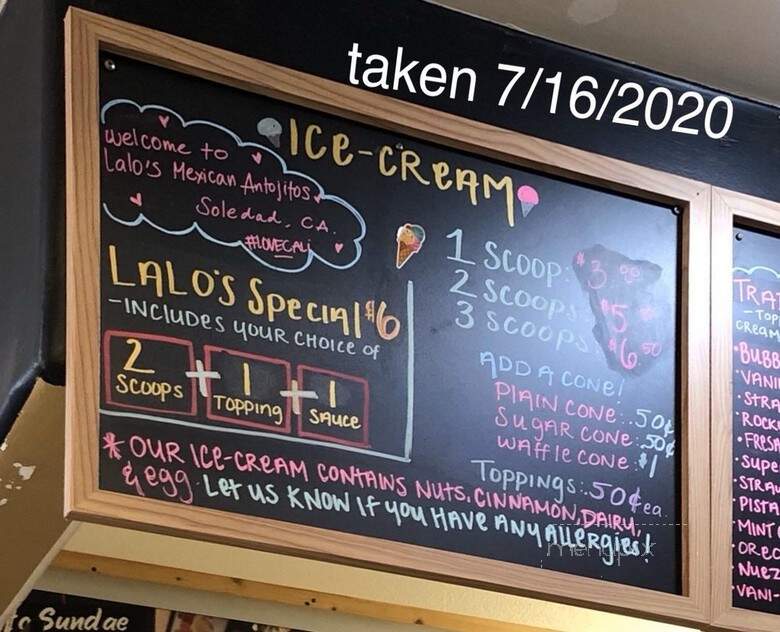 taken 7/16/2020
Welcome to
Lalo's Mexican Antojitos
Soledad, CA.
#LOVECALi
ICE-CREAM
LALO'S SPECIAL $6
-INCLUDES YOUR CHOICE OF
2 SCOOPS + 1 TOPPING + 1 SAUCE
1 SCOOP: $3.00
2 SCOOPS $5
3 SCOOPS $6.50
ADD A CONE!
PLAIN CONE: 50¢
SUGAR CONE: 50¢
WAFFLE CONE: $1
TOPPINGS: 50¢ ea.
* OUR ICE-CREAM CONTAINS NUTS, CINNAMON, DAIRY,
& egg. LET US KNOW IF YOU HAVE ANY ALLERGIES!
menupix
TRA
- TOP
CREAM
• BUBB
• VANI
• STRA
• ROCK
• FRESA
• SUPE
• STRAW
• PISTA
• MINT
• OREO
• NUEZ
• VANI-
Sundae